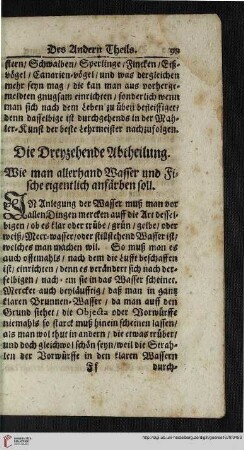 Des Andern Theils.
stern/ Schwalben/ Sperlinge/ Fincken/ Eiß-
vögel/ Canarien-vögel/ und was dergleichen
mehr seyn mag/ die kan man aus vorherge-
meldten gnugsam einrichten/ sonderlich wenn
man sich nach dem Leben zu üben befleissiget/
denn dasselbige ist durchgehends in der Mah-
ler-Kunst der beste Lehrmeister nachzufolgen.
Die Dreyzehende Abtheilung.
Wie man allerhand Wasser und Fi-
sche eigentlich anfärben soll.
IN Anlegung der Wasser muß man vor
allen Dingen mercken auff die Art dessel-
bigen/ ob es klar oder trübe/ grün/ gelbe/ oder
weiß/ Meer-wasser/ oder stillstehend Wasser ist/
welches man machen wil. So muß man es
auch offtmahls/ nach dem die Lufft beschaffen
ist/ einrichten/ denn es verändert sich nach der-
selbigen/ nach- em sie in das Wasser scheinet.
Mercket auch beyläufftig/ daß man in gantz
klaren Brunnen-Wasser/ da man auff den
Grund siehet/ die Objecta oder Vorwürffe
niemahls so starck muß hinein scheinen lassen/
als man wol thut in andern/ die etwas trüber/
und doch gleichwol schön seyn/ weil die Strah-
len der Vorwürffe in den klaren Wassern
Ff durch-